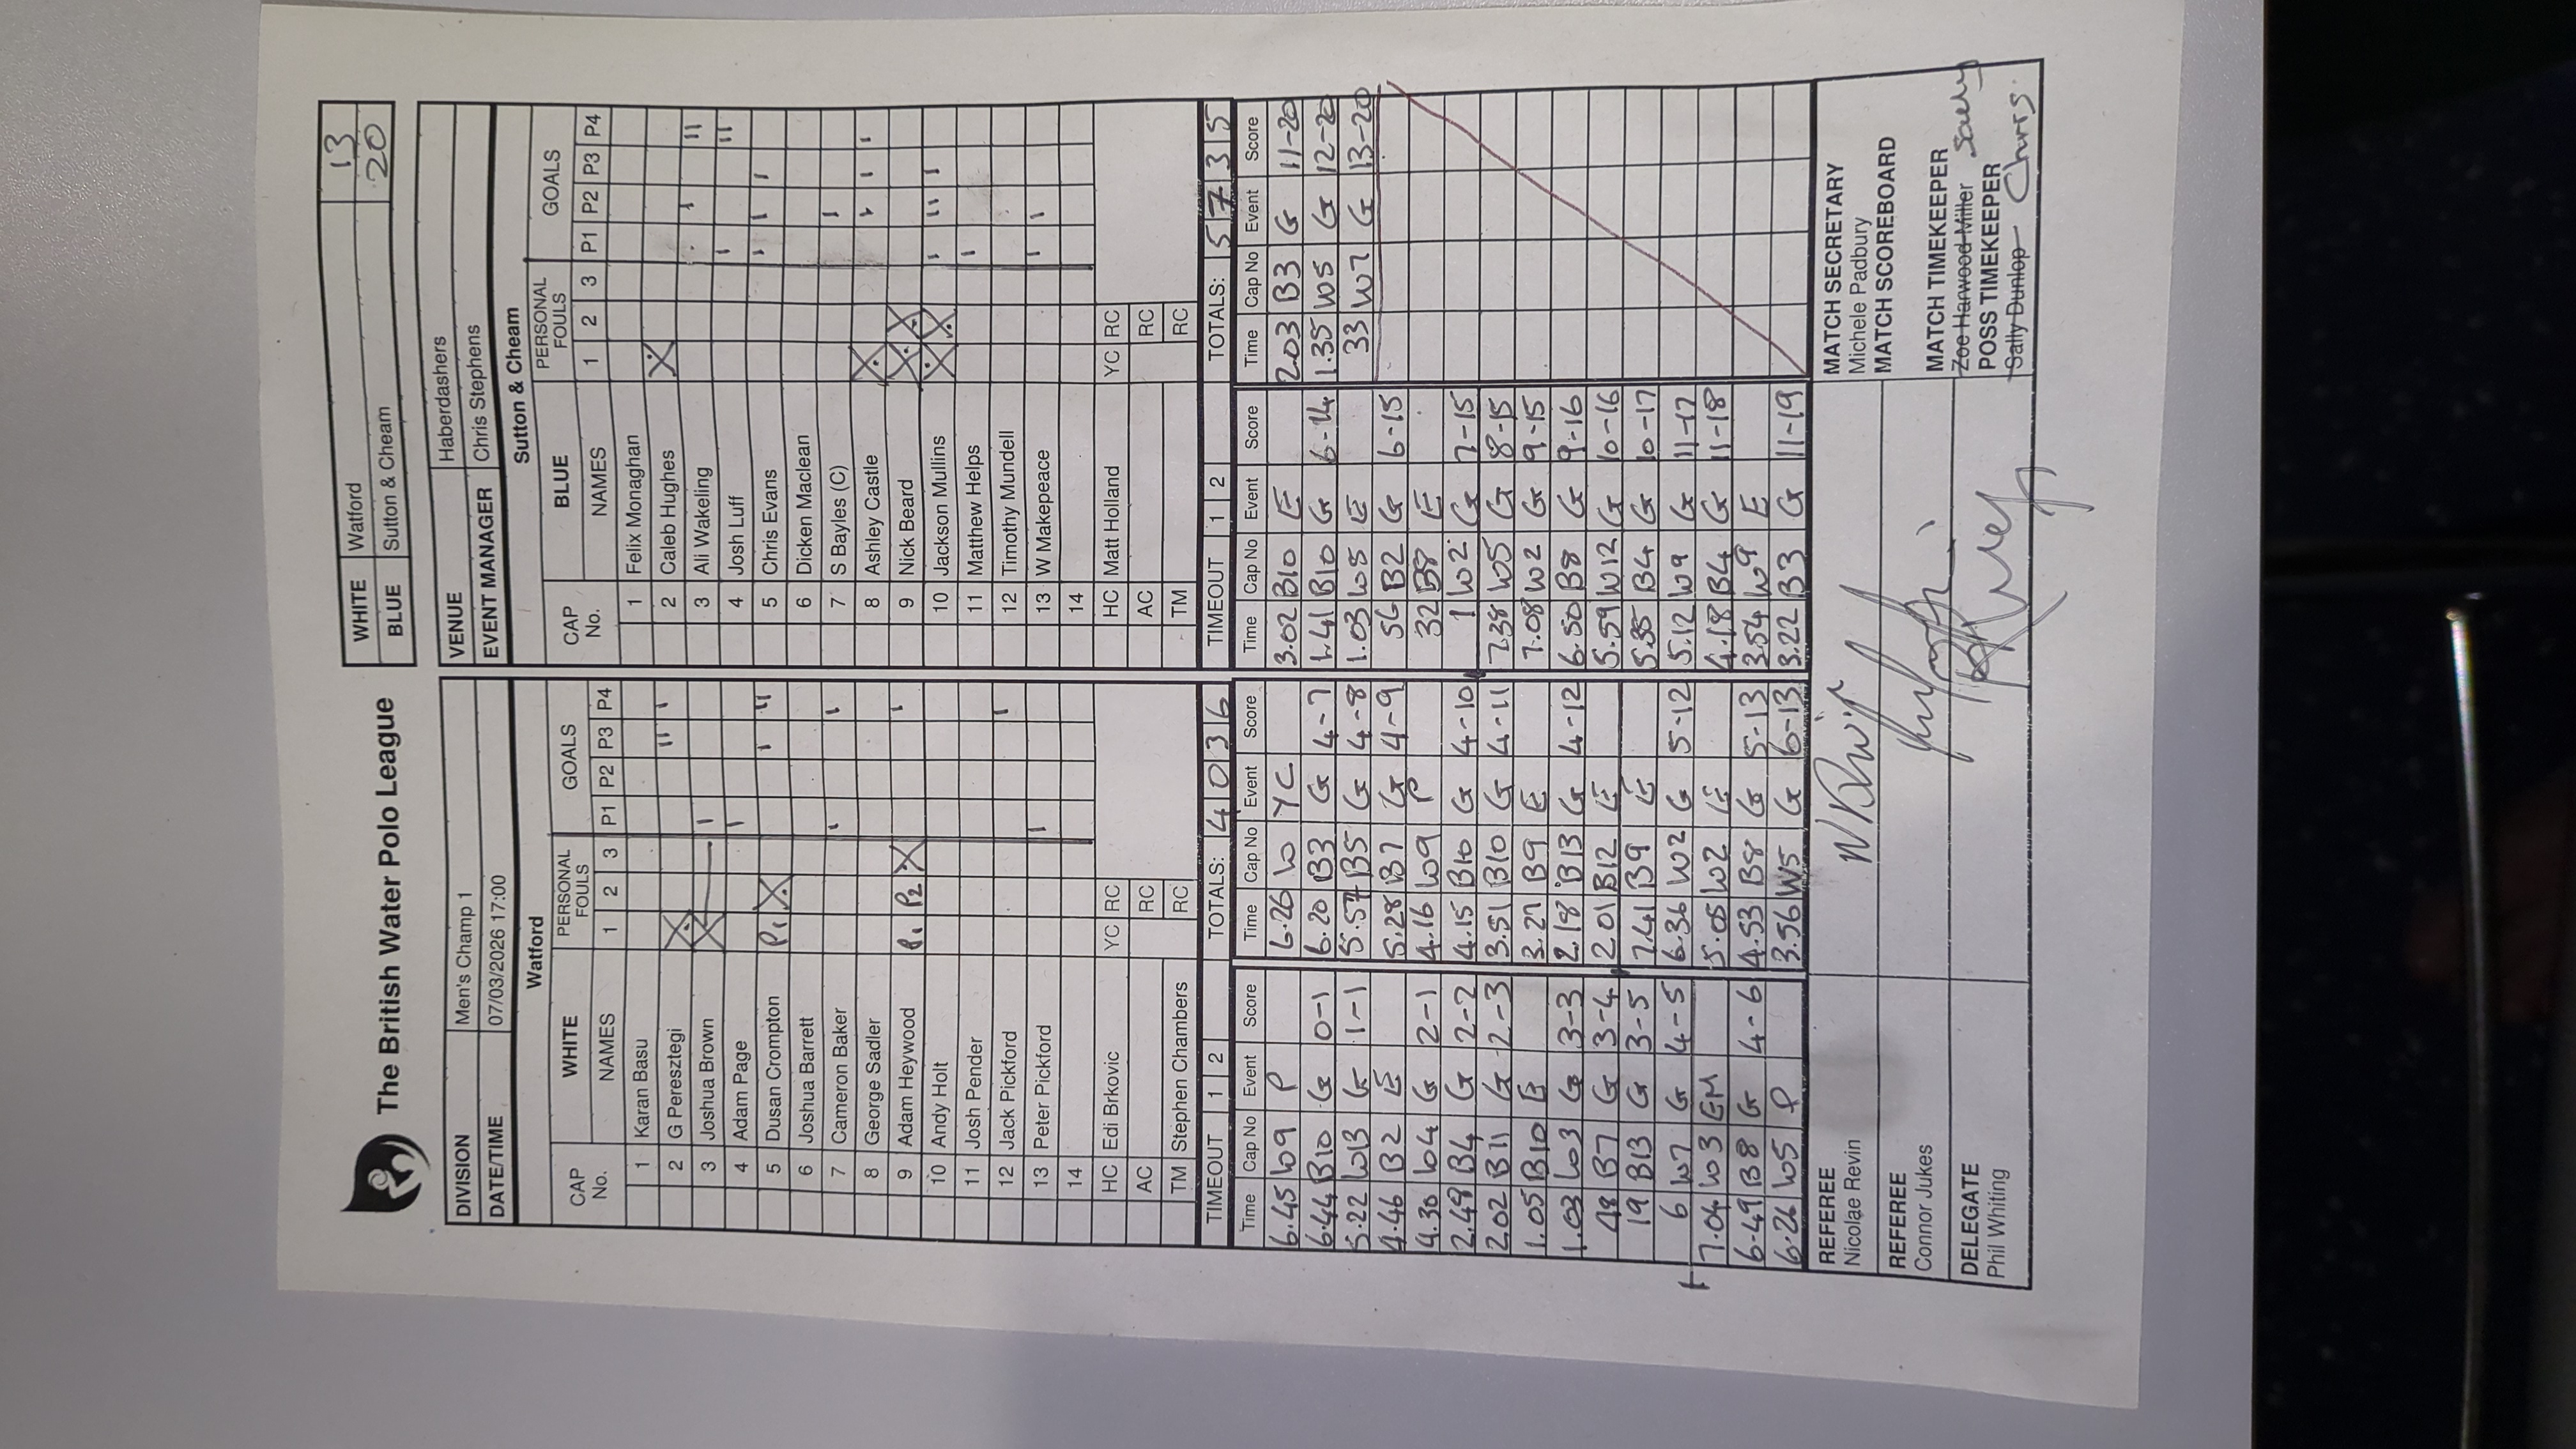 The British Water Polo League
WHITE Watford 13
BLUE Sutton & Cheam 20
DIVISION Men's Champ 1
DATE/TIME 07/03/2026 17:00
VENUE Haberdashers
EVENT MANAGER Chris Stephens
Watford
CAP No. WHITE NAMES PERSONAL FOULS 1 2 3 GOALS P1 P2 P3 P4
1 Karan Basu
2 G Peresztegi X II I
3 Joshua Brown X I
4 Adam Page I
5 Dusan Crompton P1 X I II
6 Joshua Barrett
7 Cameron Baker I I
8 George Sadler
9 Adam Heywood P1 P2 X I
10 Andy Holt
11 Josh Pender
12 Jack Pickford I
13 Peter Pickford I
14
HC Edi Brkovic YC RC
AC RC
TM Stephen Chambers RC
TIMEOUT 1 2 TOTALS: 4 0 3 6
Sutton & Cheam
CAP No. BLUE NAMES PERSONAL FOULS 1 2 3 GOALS P1 P2 P3 P4
1 Felix Monaghan
2 Caleb Hughes X
3 Ali Wakeling I II
4 Josh Luff I II
5 Chris Evans I I I
6 Dicken Maclean
7 S Bayles (C) I
8 Ashley Castle X I I I
9 Nick Beard X X
10 Jackson Mullins X X I II I
11 Matthew Helps I
12 Timothy Mundell
13 W Makepeace I I
14
HC Matt Holland YC RC
AC RC
TM RC
TIMEOUT 1 2 TOTALS: 5 7 3 5
Time Cap No Event Score
6.45 W9 P
6.44 B10 G 0-1
5.22 W13 G 1-1
4.46 B2 E
4.30 W4 G 2-1
2.49 B4 G 2-2
2.02 B11 G 2-3
1.05 B10 E
1.03 W3 G 3-3
48 B7 G 3-4
19 B13 G 3-5
6 W7 G 4-5
7.04 W3 EM
6.49 B8 G 4-6
6.26 W5 P
Time Cap No Event Score
6.26 W YC
6.20 B3 G 4-7
5.57 B5 G 4-8
5.28 B7 G 4-9
4.16 W9 P
4.15 B10 G 4-10
3.51 B10 G 4-11
3.27 B9 E
2.18 B13 G 4-12
2.01 B12 E
7.41 B9 E
6.36 W2 G 5-12
5.05 W2 E
4.53 B8 G 5-13
3.56 W5 G 6-13
Time Cap No Event Score
3.02 B10 E
1.41 B10 G 6-14
1.03 W5 E
56 B2 G 6-15
32 B8 E
1 W2 G 7-15
7.38 W5 G 8-15
7.08 W2 G 9-15
6.50 B8 G 9-16
5.59 W12 G 10-16
5.35 B4 G 10-17
5.12 W9 G 11-17
4.18 B4 G 11-18
3.54 W9 E
3.22 B3 G 11-19
Time Cap No Event Score
2.03 B3 G 11-20
1.35 W5 G 12-20
33 W7 G 13-20
REFEREE
Nicolae Revin
REFEREE
Connor Jukes
DELEGATE
Phil Whiting
MATCH SECRETARY
Michele Padbury
MATCH SCOREBOARD
MATCH TIMEKEEPER
Zoe Harwood-Miller Sally
POSS TIMEKEEPER
Sally Dunlop Chris